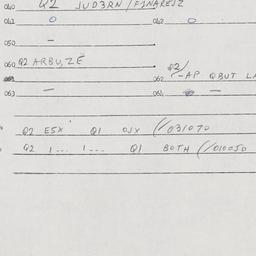 040 Q2 JUD3RN/FINARE12
041 0 042 0
050 -
060 Q2 ARBU,ZE
Q2/-AP QBUT LA
062
063 - 064 -
Q2 E5X Q1 OJX (/031070
Q2 1... 1... Q1 BOTH (/010050